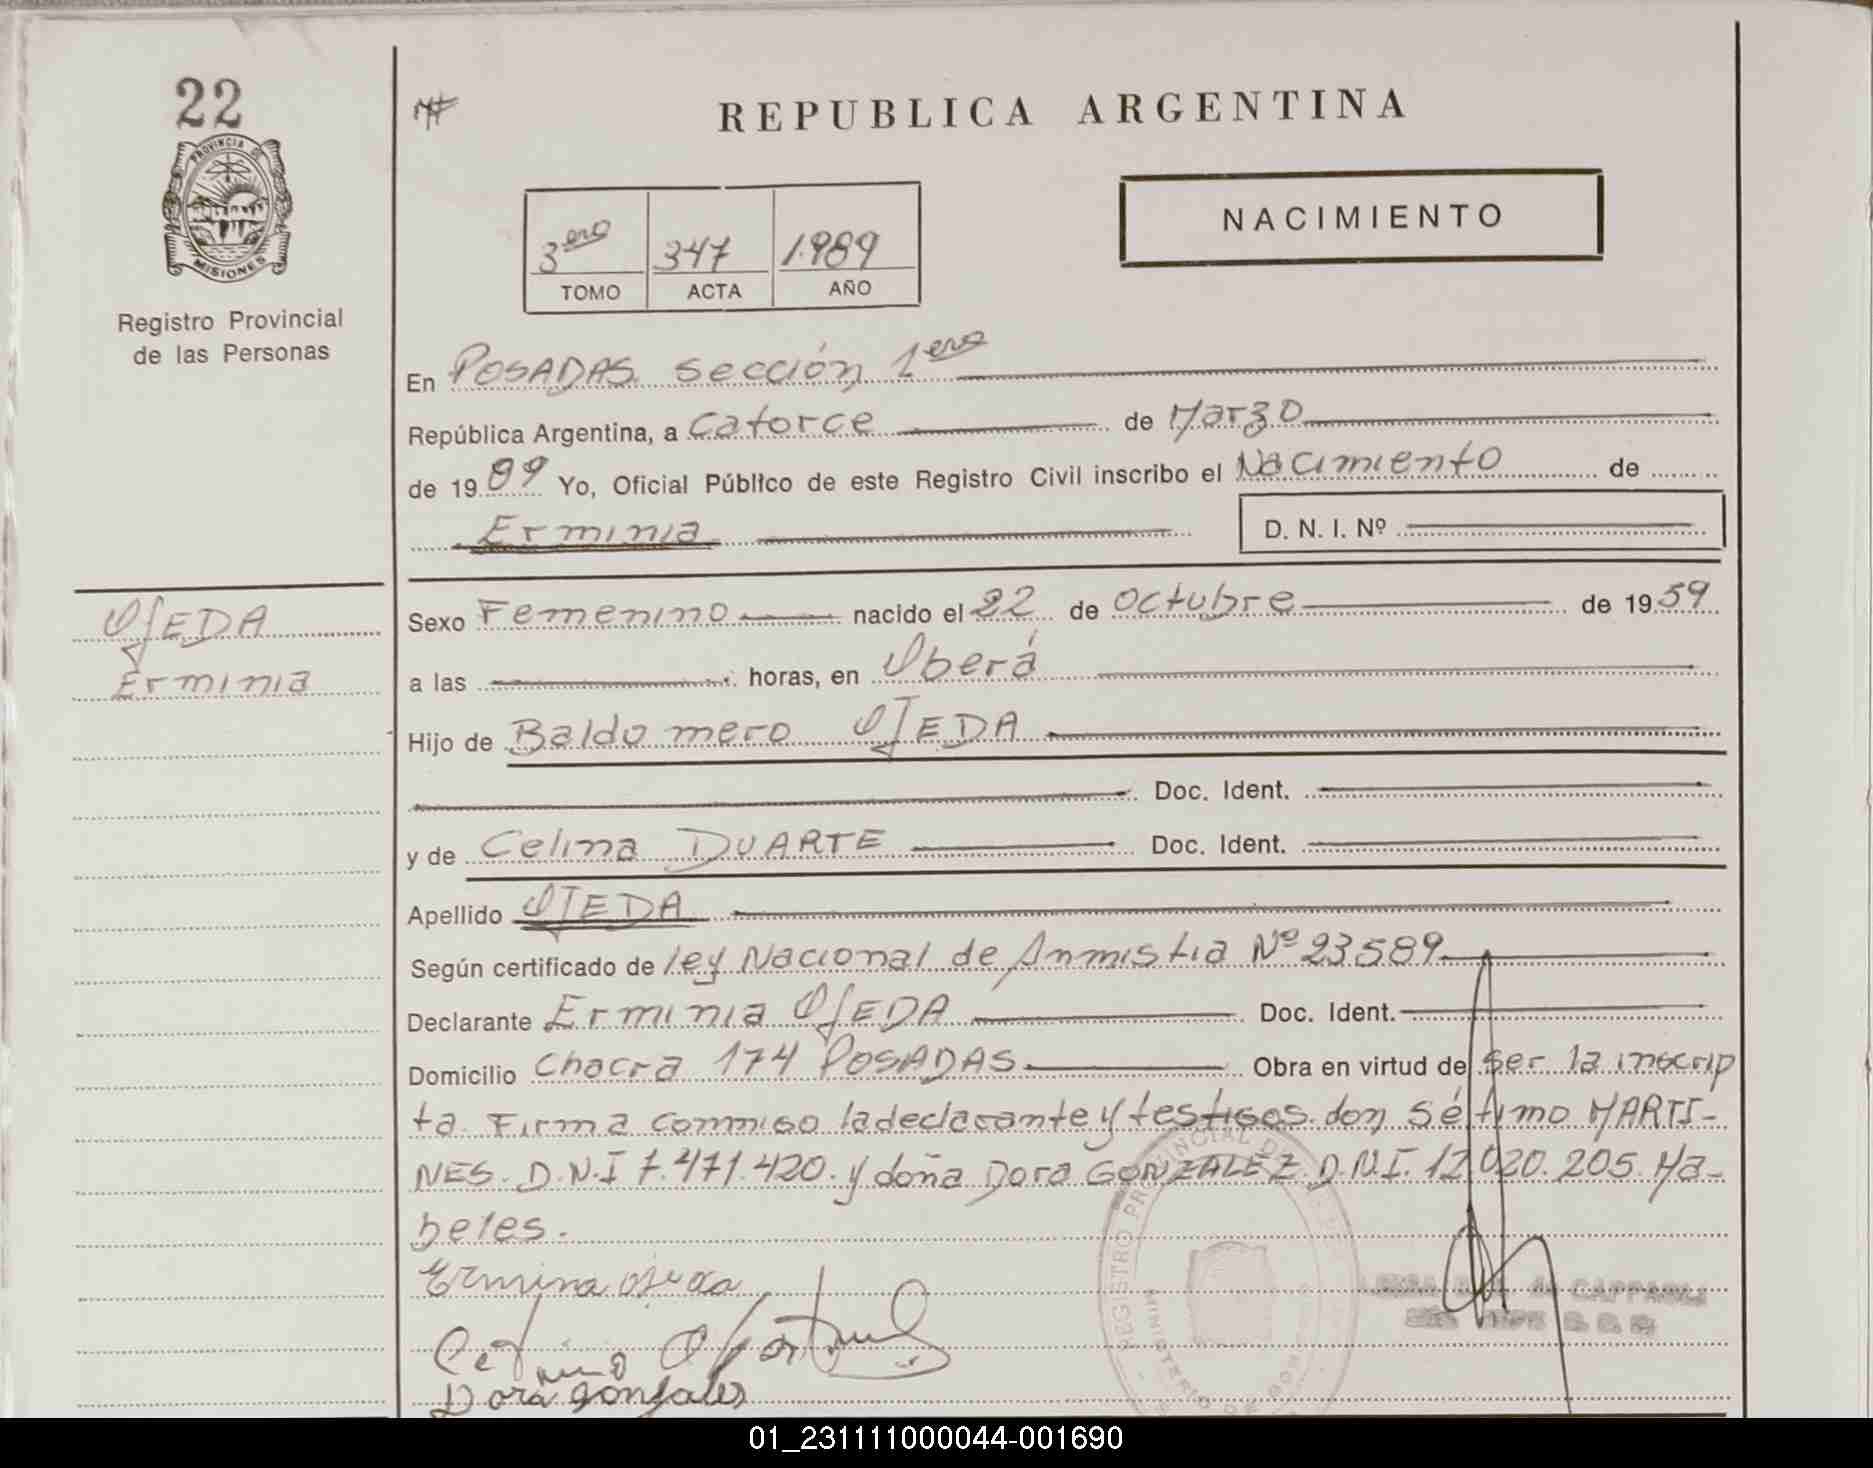 22
PROVINCIA DE
MISIONES
Registro Provincial
de las Personas
OJEDA
Erminia
REPUBLICA ARGENTINA
NACIMIENTO
3ero 347 1.989
TOMO ACTA AÑO
En POSADAS. sección 1era
República Argentina, a catorce de Marzo
de 1989 Yo, Oficial Público de este Registro Civil inscribo el Nacimiento de
Erminia D. N. I. Nº
Sexo Femenino nacido el 22 de octubre de 1959
a las horas, en Oberá
Hijo de Baldomero OJEDA
Doc. Ident.
y de Celina DUARTE Doc. Ident.
Apellido OJEDA
Según certificado de ley Nacional de Anmistia Nº 23589
Declarante Erminia OJEDA Doc. Ident.
Domicilio Chacra 174 POSADAS Obra en virtud de ser la inscrip
ta. Firma commigo la declarante y testigos. don Sétimo MARTI-
NES. D.N.I 7.471.420. y doña Dora GONZALEZ D.N.I. 12.020.205. Há-
beles.
Ermina ojeda
Dora gonzales
REGISTRO PROVINCIAL DE
MINISTERIO DE GOB
01_231111000044-001690